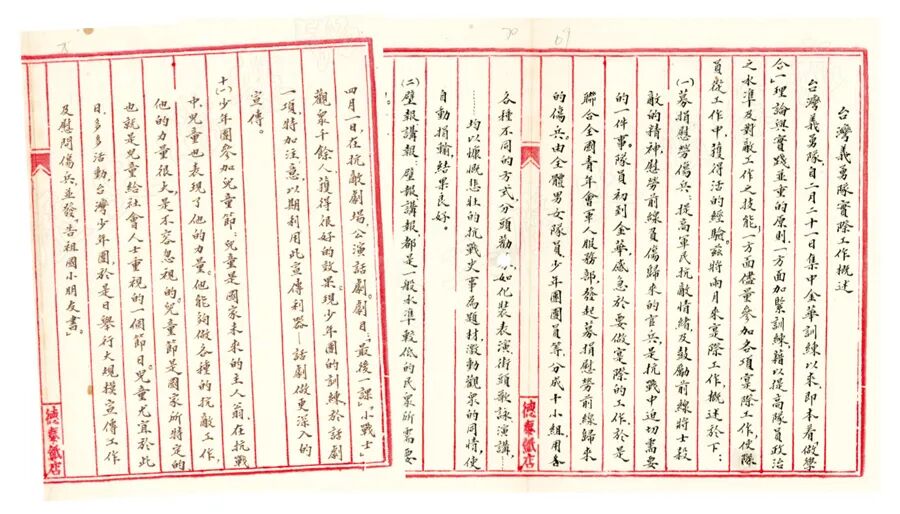 台灣義勇隊實際工作概述
台灣義勇隊自二月二十一日集中金華訓練以來，即本着「做學
合一」理論與實踐並重的原則，一方面加緊訓練，藉以提高隊員政治
之水準及對敵工作之技能，一方面儘量參加各項實際工作，使隊
員從工作中，獲得活的經驗。茲將兩月來實際工作，概述於下：
(一)募捐慰勞傷兵：提高軍民抗敵情緒及鼓勵前線將士殺
敵的精神，慰勞前線負傷歸來的官兵，是抗戰中迫切需要
的一件事。隊員初到金華，感急於要做實際的工作，於是
聯合全國青年會軍人服務部，發起募捐慰勞前線歸來
的傷兵，由全體男女隊員，少年團團員等，分成十小組，用各
各種不同的方式分頭勸 ，如化裝表演街頭歌詠演講……
均以慷慨悲壯的抗戰史事為題材，激動觀眾的同情，使
自動捐輸，結果良好。
(二)壁報講報：壁報講報，都是一般水準較低的民眾所需要
四月一日在抗敵劇場，公演話劇。劇目：「最後一課」「小戰士」
觀眾千餘人，獲得很好的效果。現少年團的訓練，於話劇
一項，特加注意，以期利用此宣傳利器——話劇做更深入的
宣傳。
十(六)少年團參加兒童節：兒童是國家未來的主人翁，在抗戰
中兒童也表現了他的力量。他能夠做各種的抗敵工作，
他的力量很大，是不容忽視的。兒童節是國家所特定的
也就是兒童給社會人士重視的一個節日。兒童尤宜於此
日，多多活動。台灣少年團，於是日舉行大規模宣傳工作
及慰問傷兵，並發「告祖國小朋友書」。
德泰紙店
德泰紙店
70
69